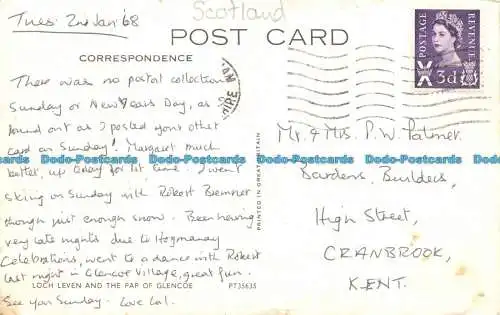 Scotland
Tues. 2nd Jan '68
POST CARD
CORRESPONDENCE
There was no postal collection
Sunday or New Years Day, as I
found out as I posted your other
card on Sunday! Margaret much
better, up today for 1st time. I went
skiing on Sunday with Robert Bremner
though just enough snow. Been having
very late nights due to Hogmanay
Celebrations, went to a dance with Robert
last night in Glencoe Village, great fun.
See you Sunday. Love
LOCH LEVEN AND THE PAP OF GLENCOE PT35635
PRINTED IN GREAT BRITAIN
POSTAGE
REVENUE
3d
Mr. & Mrs. P.W. Palmer,
Builders,
High Street,
CRANBROOK,
KENT.
Dodo-Postcards Dodo-Postcards Dodo-Postcards Dodo-Postcards